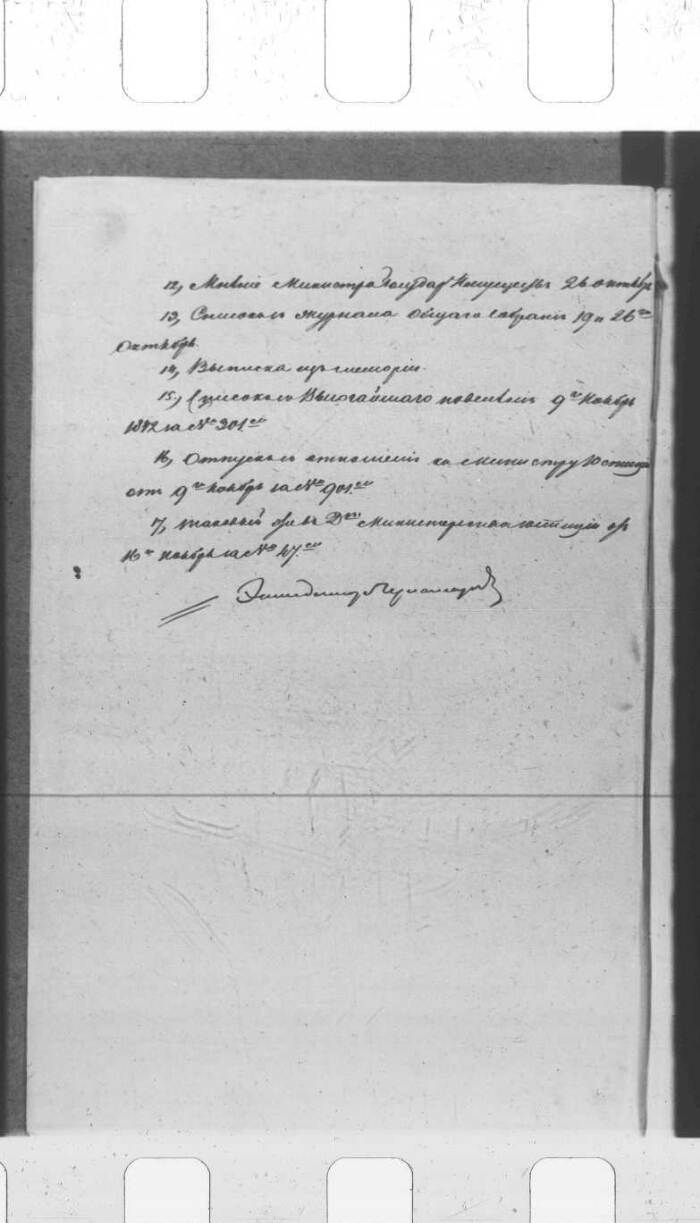 12, Мнѣніе Министра Государ. Имуществъ 26 октября
13, Списокъ журнала Общаго собранія 19 и 26го
Октября.
14, Выписка изъ меморіи.
15, Списокъ Высочайшаго повелѣнія 9го Ноября
1842 за № 301мъ
16, Отпускъ отношенія къ Министру Юстиціи
отъ 9го Ноября за № 901мъ
7, таковый же въ Дтъ Министерства юстиціи отъ
16го Ноября за № 47мъ